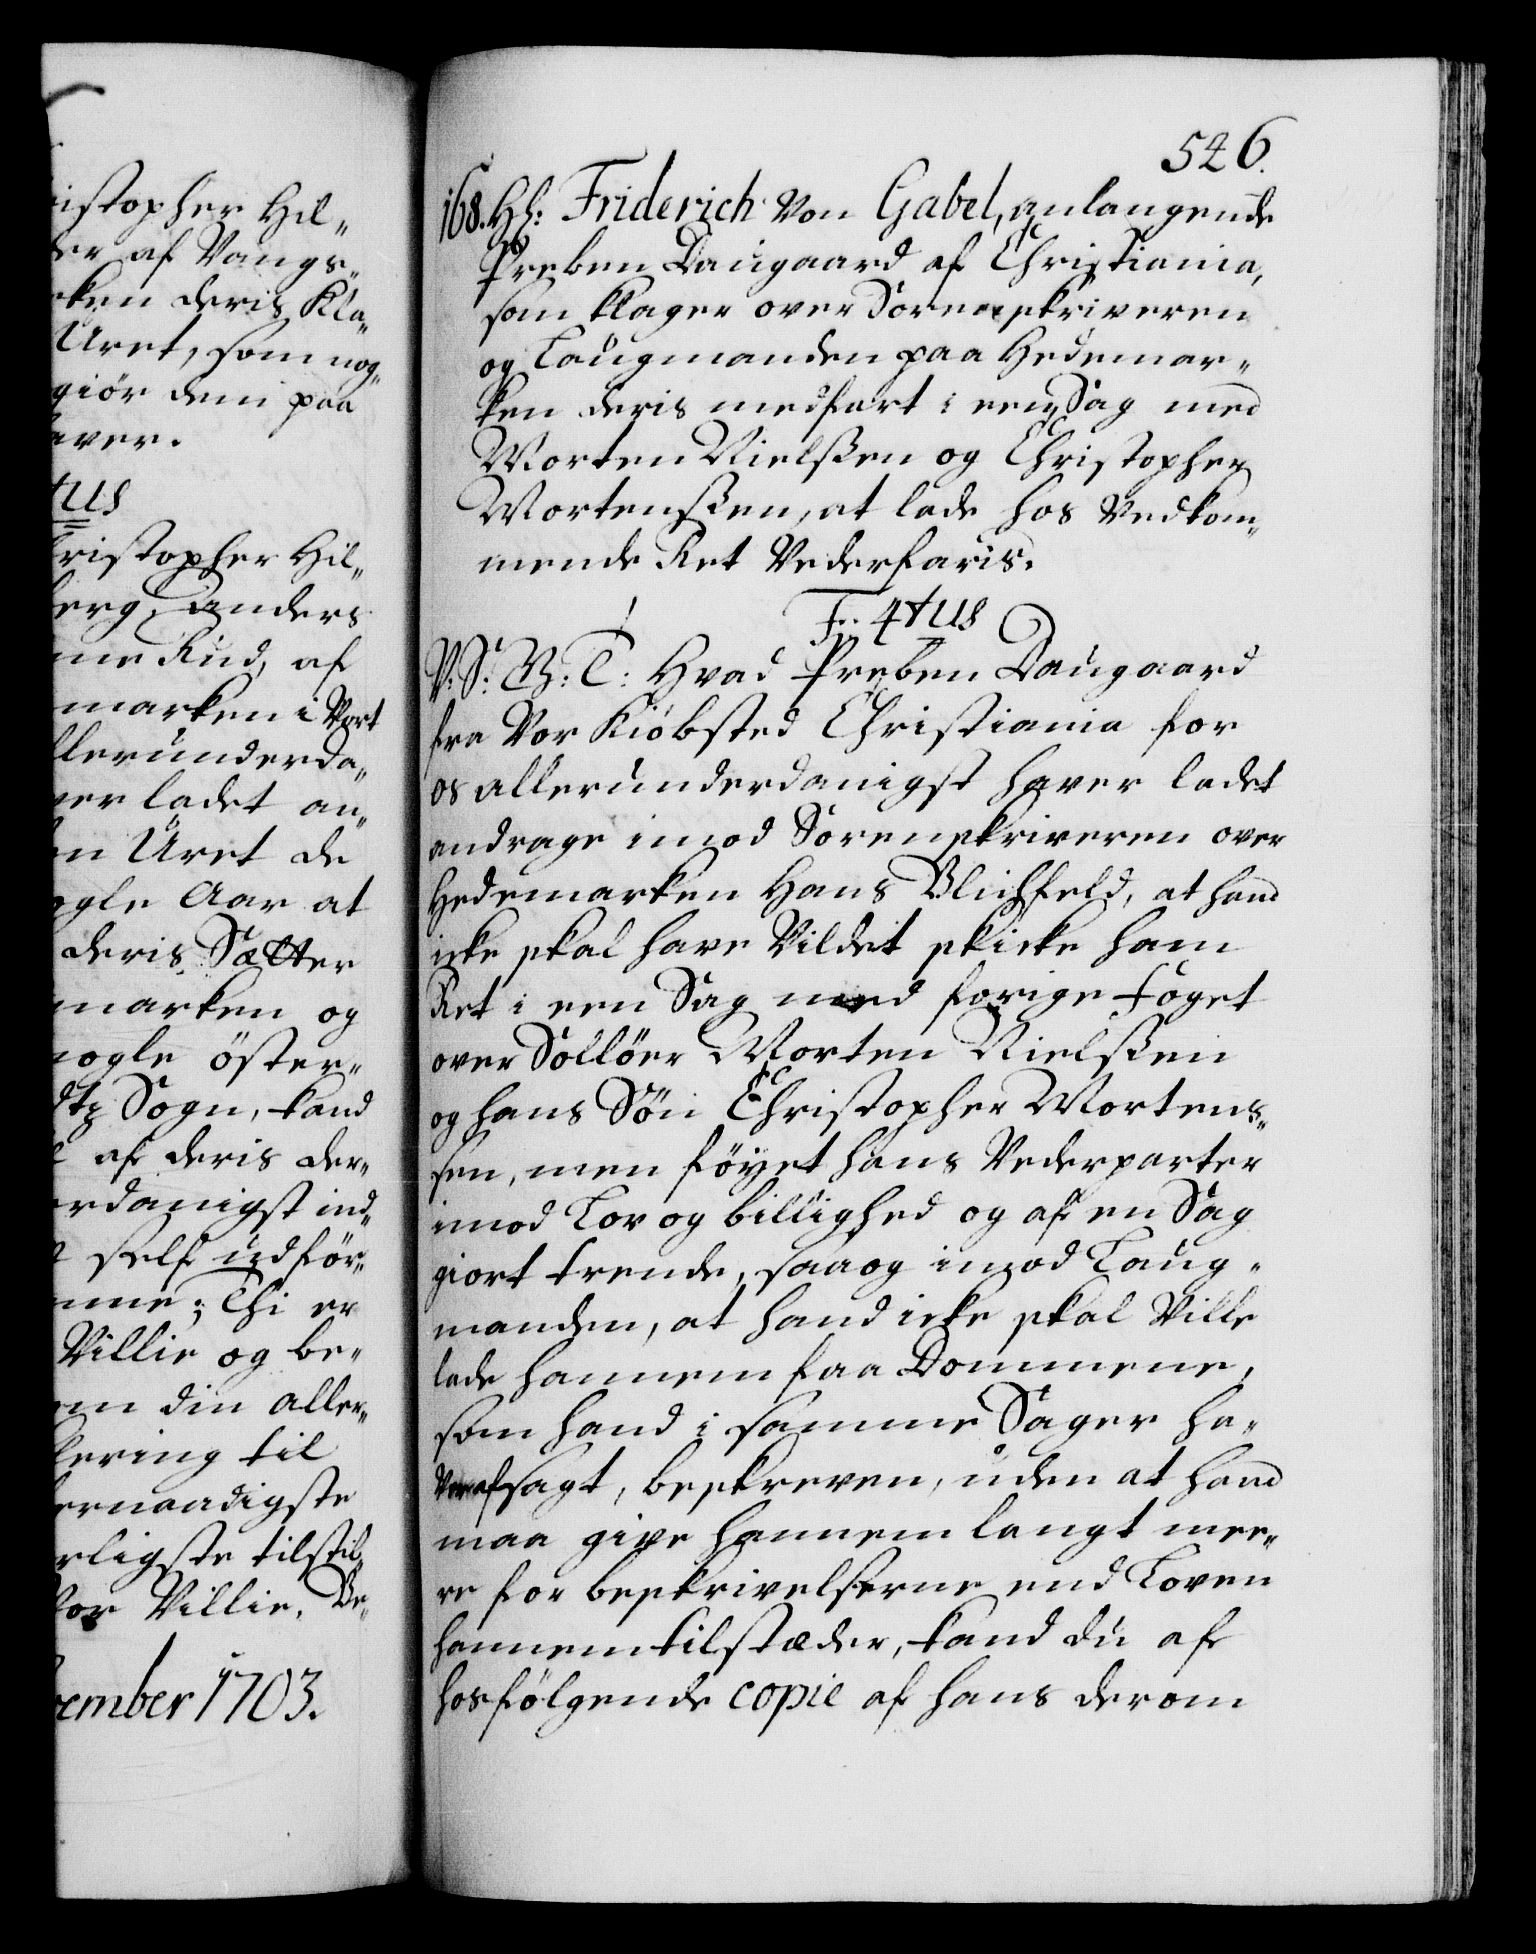 istopher Hil„
der af Vangs„
rken deris Kla„
Uret, som nog„
giör dem paa
aver.
tus
hristopher Hil„
berg, Anders
me Rud, af
marken i Vort
llerunderda„
ver ladet an„
en Uret de
ogle Aar at
deris Sætter
marken og
nogle öster„
dtz Sogn, kand
af deris der„
rdanigst ind„
self udför„
mme; Thi er
Villie og be„
em din aller„
lering til
ernaadigste
rligste tilstil„
Vor Villie. Be„
vember 1703.
526.
168. Hl: Friderich Von Gabel, anlangende
Preben Daugaard af Christiania,
som klager over Sorenskriveren
og Laugmanden paa Hedemar„
ken deris medfart i een Sag med
Morten Nielssen og Christopher
Mortenssen, at lade hos Vedkom„
mende Ret Vederfaris.
F: 4tus
V: S: G: T: Hvad Preben Daugaard
fra Vor Kiöbsted Christiania for
os allerunderdanigst haver ladet
andrage imod Sorenskriveren over
Hedemarken Hans Blichfeld, at hand
icke skal have Vildet skicke ham
Ret i een Sag med forige Foget
over Sollöer Morten Nielssen
og hans Sön Christopher Mortens„
sen, men föyet hans Vederparter
imod Lov og billighed og af en Sag
giort trende, saa og imod Laug„
manden, at hand icke skal Ville
lade hannem faa Dommene,
som hand i samme Sager ha„
ver afsagt, beskreven, uden at hand
maa give hannem langt mee„
re for beskrivelserne end Loven
hannem tilstæder, kand du af
hosfölgende copie af hans derom